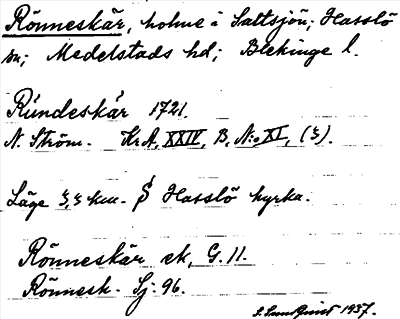 Rönneskär, holme i Saltsjön; Hasslö
sn; Medelstads hd; Blekinge l.
Rundeskär 1721.
N. Ström. Kr.A, XXIV, B, N:o XI, (3).
Läge 3,3 km. S Hasslö kyrka.
Rönneskär ek, G. 11.
Rönnesk. Sj. 96.
S. Lundquist 1937.